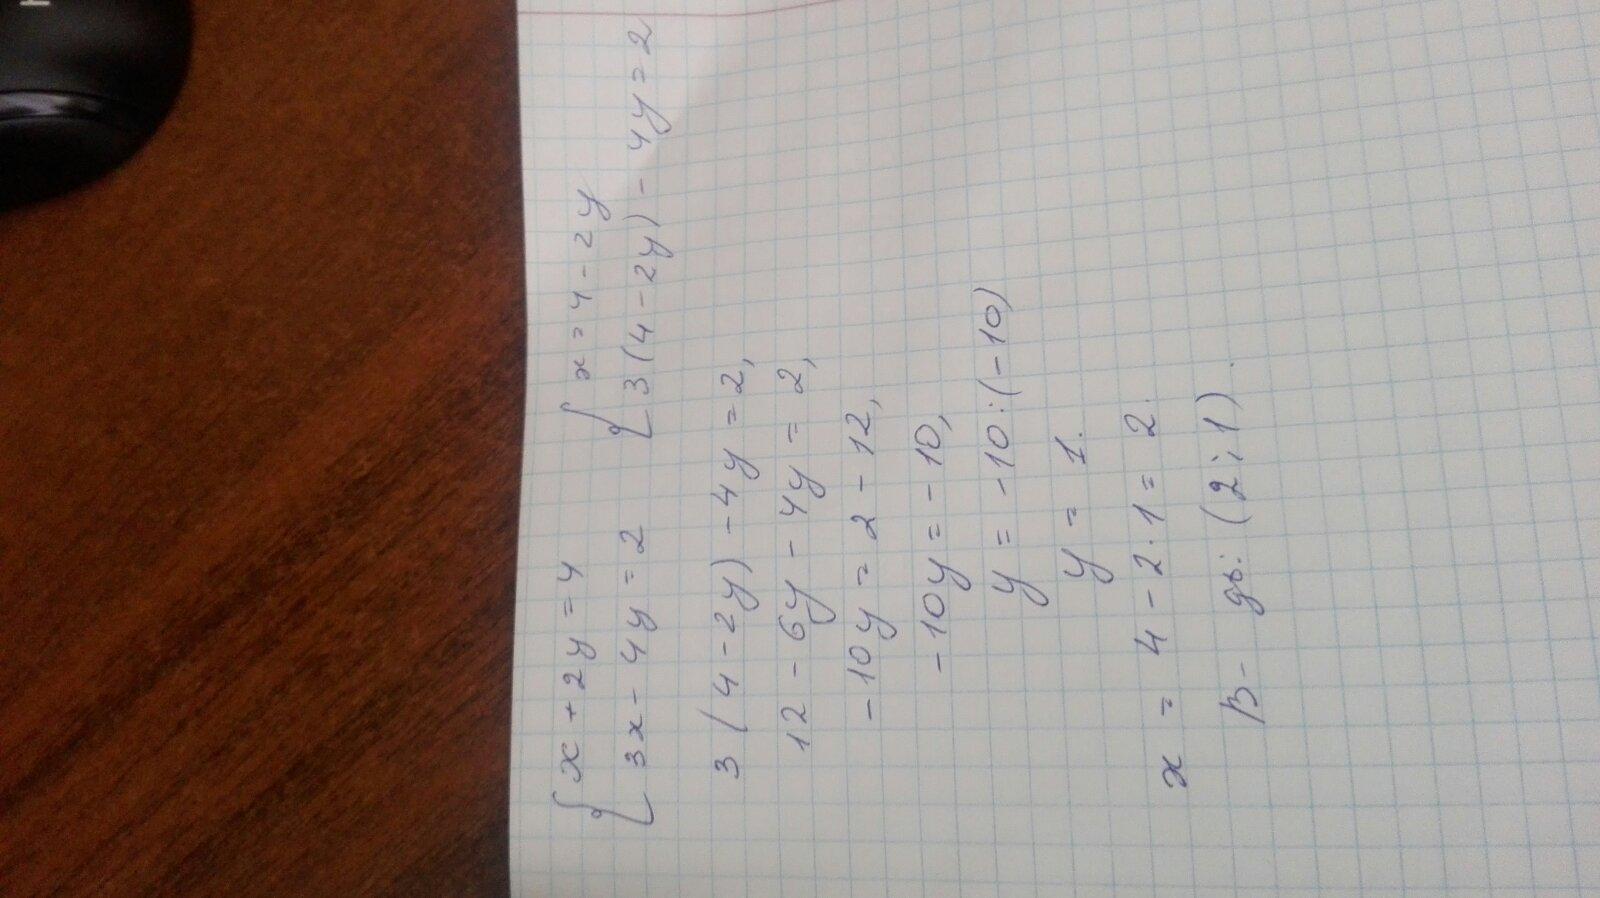 { x + 2y = 4 { x = 4 - 2y
3x - 4y = 2 3(4 - 2y) - 4y = 2
3(4 - 2y) - 4y = 2,
12 - 6y - 4y = 2,
-10y = 2 - 12,
-10y = -10,
y = -10:(-10)
y = 1.
x = 4 - 2·1 = 2.
В-дь: (2;1).